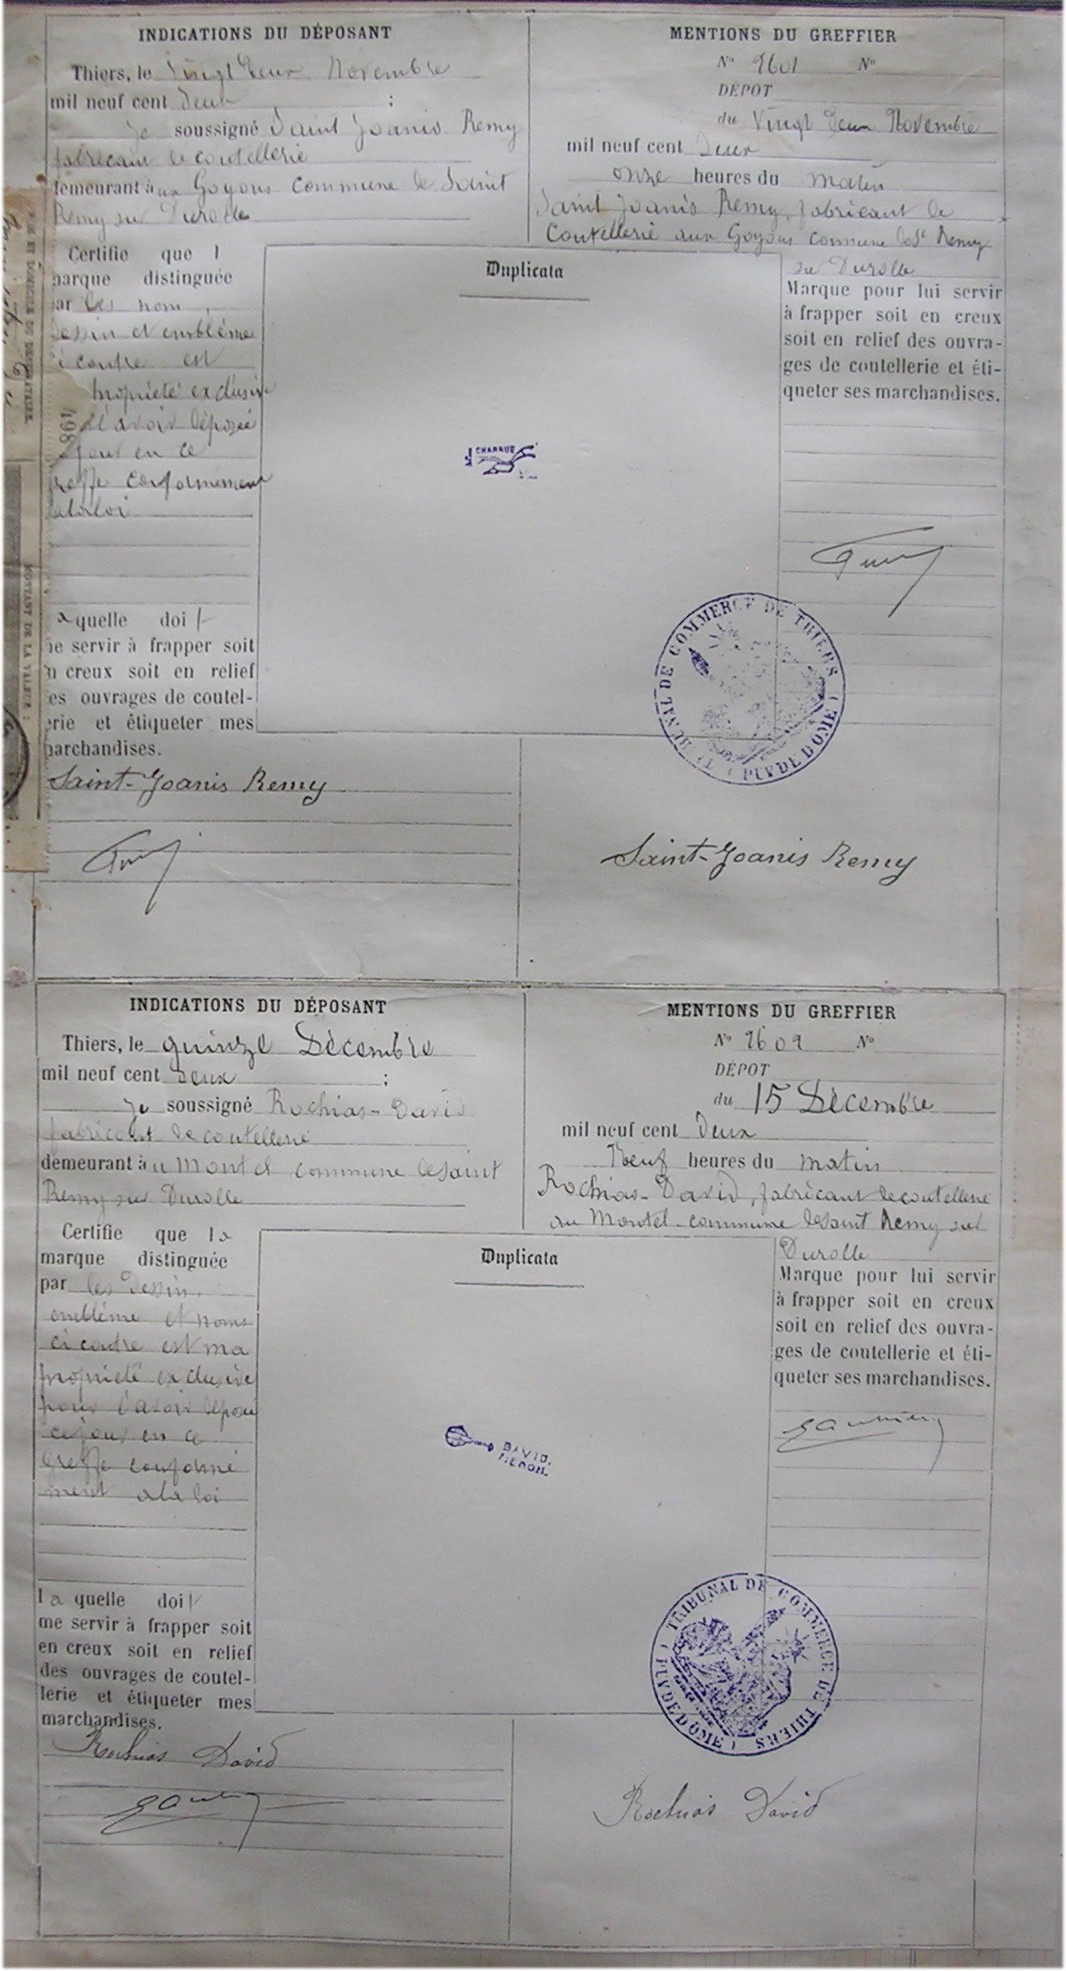 INDICATIONS DU DÉPOSANT
Thiers, le Vingt deux Novembre
mil neuf cent deux ;
Je soussigné Saint Joanis Remy
fabricant de coutellerie
demeurant aux Goyons commune de Saint
Remy sur Durolle
Certifie que l
marque distinguée
par les nom,
dessin et emblème
ci contre est
propriété exclusive
l'avoir déposée
jour en ce
greffe conformément
à la loi
laquelle doit
me servir à frapper soit
en creux soit en relief
des ouvrages de coutel-
lerie et étiqueter mes
marchandises.
Saint-Joanis Remy
Duplicata
CHARRUE
MENTIONS DU GREFFIER
N° 2601 N°
DÉPOT
du Vingt deux Novembre
mil neuf cent deux
onze heures du matin
Saint Joanis Remy, fabricant de
Coutellerie aux Goyons commune de St Remy
sur Durolle
Marque pour lui servir
à frapper soit en creux
soit en relief des ouvra-
ges de coutellerie et éti-
queter ses marchandises.
TRIBUNAL DE COMMERCE DE THIERS
(PUY DE DOME)
Saint-Joanis Remy
INDICATIONS DU DÉPOSANT
Thiers, le quinze Décembre
mil neuf cent deux ;
Je soussigné Rochias-David
fabricant de coutellerie
demeurant au Montel commune de Saint
Remy sur Durolle
Certifie que la
marque distinguée
par les dessin,
emblème et noms
ci contre est ma
propriété exclusive
pour l'avoir déposé
ce jour en ce
Greffe conformé
ment à la loi
laquelle doit
me servir à frapper soit
en creux soit en relief
des ouvrages de coutel-
lerie et étiqueter mes
marchandises.
Rochias David
Duplicata
DAVID.
MENTIONS DU GREFFIER
N° 2602 N°
DÉPOT
du 15 Décembre
mil neuf cent Deux
Neuf heures du matin
Rochias-David, fabricant de coutellerie
au Montel commune de Saint Remy sur
Durolle
Marque pour lui servir
à frapper soit en creux
soit en relief des ouvra-
ges de coutellerie et éti-
queter ses marchandises.
TRIBUNAL DE COMMERCE DE THIERS
(PUY DE DOME)
Rochias David